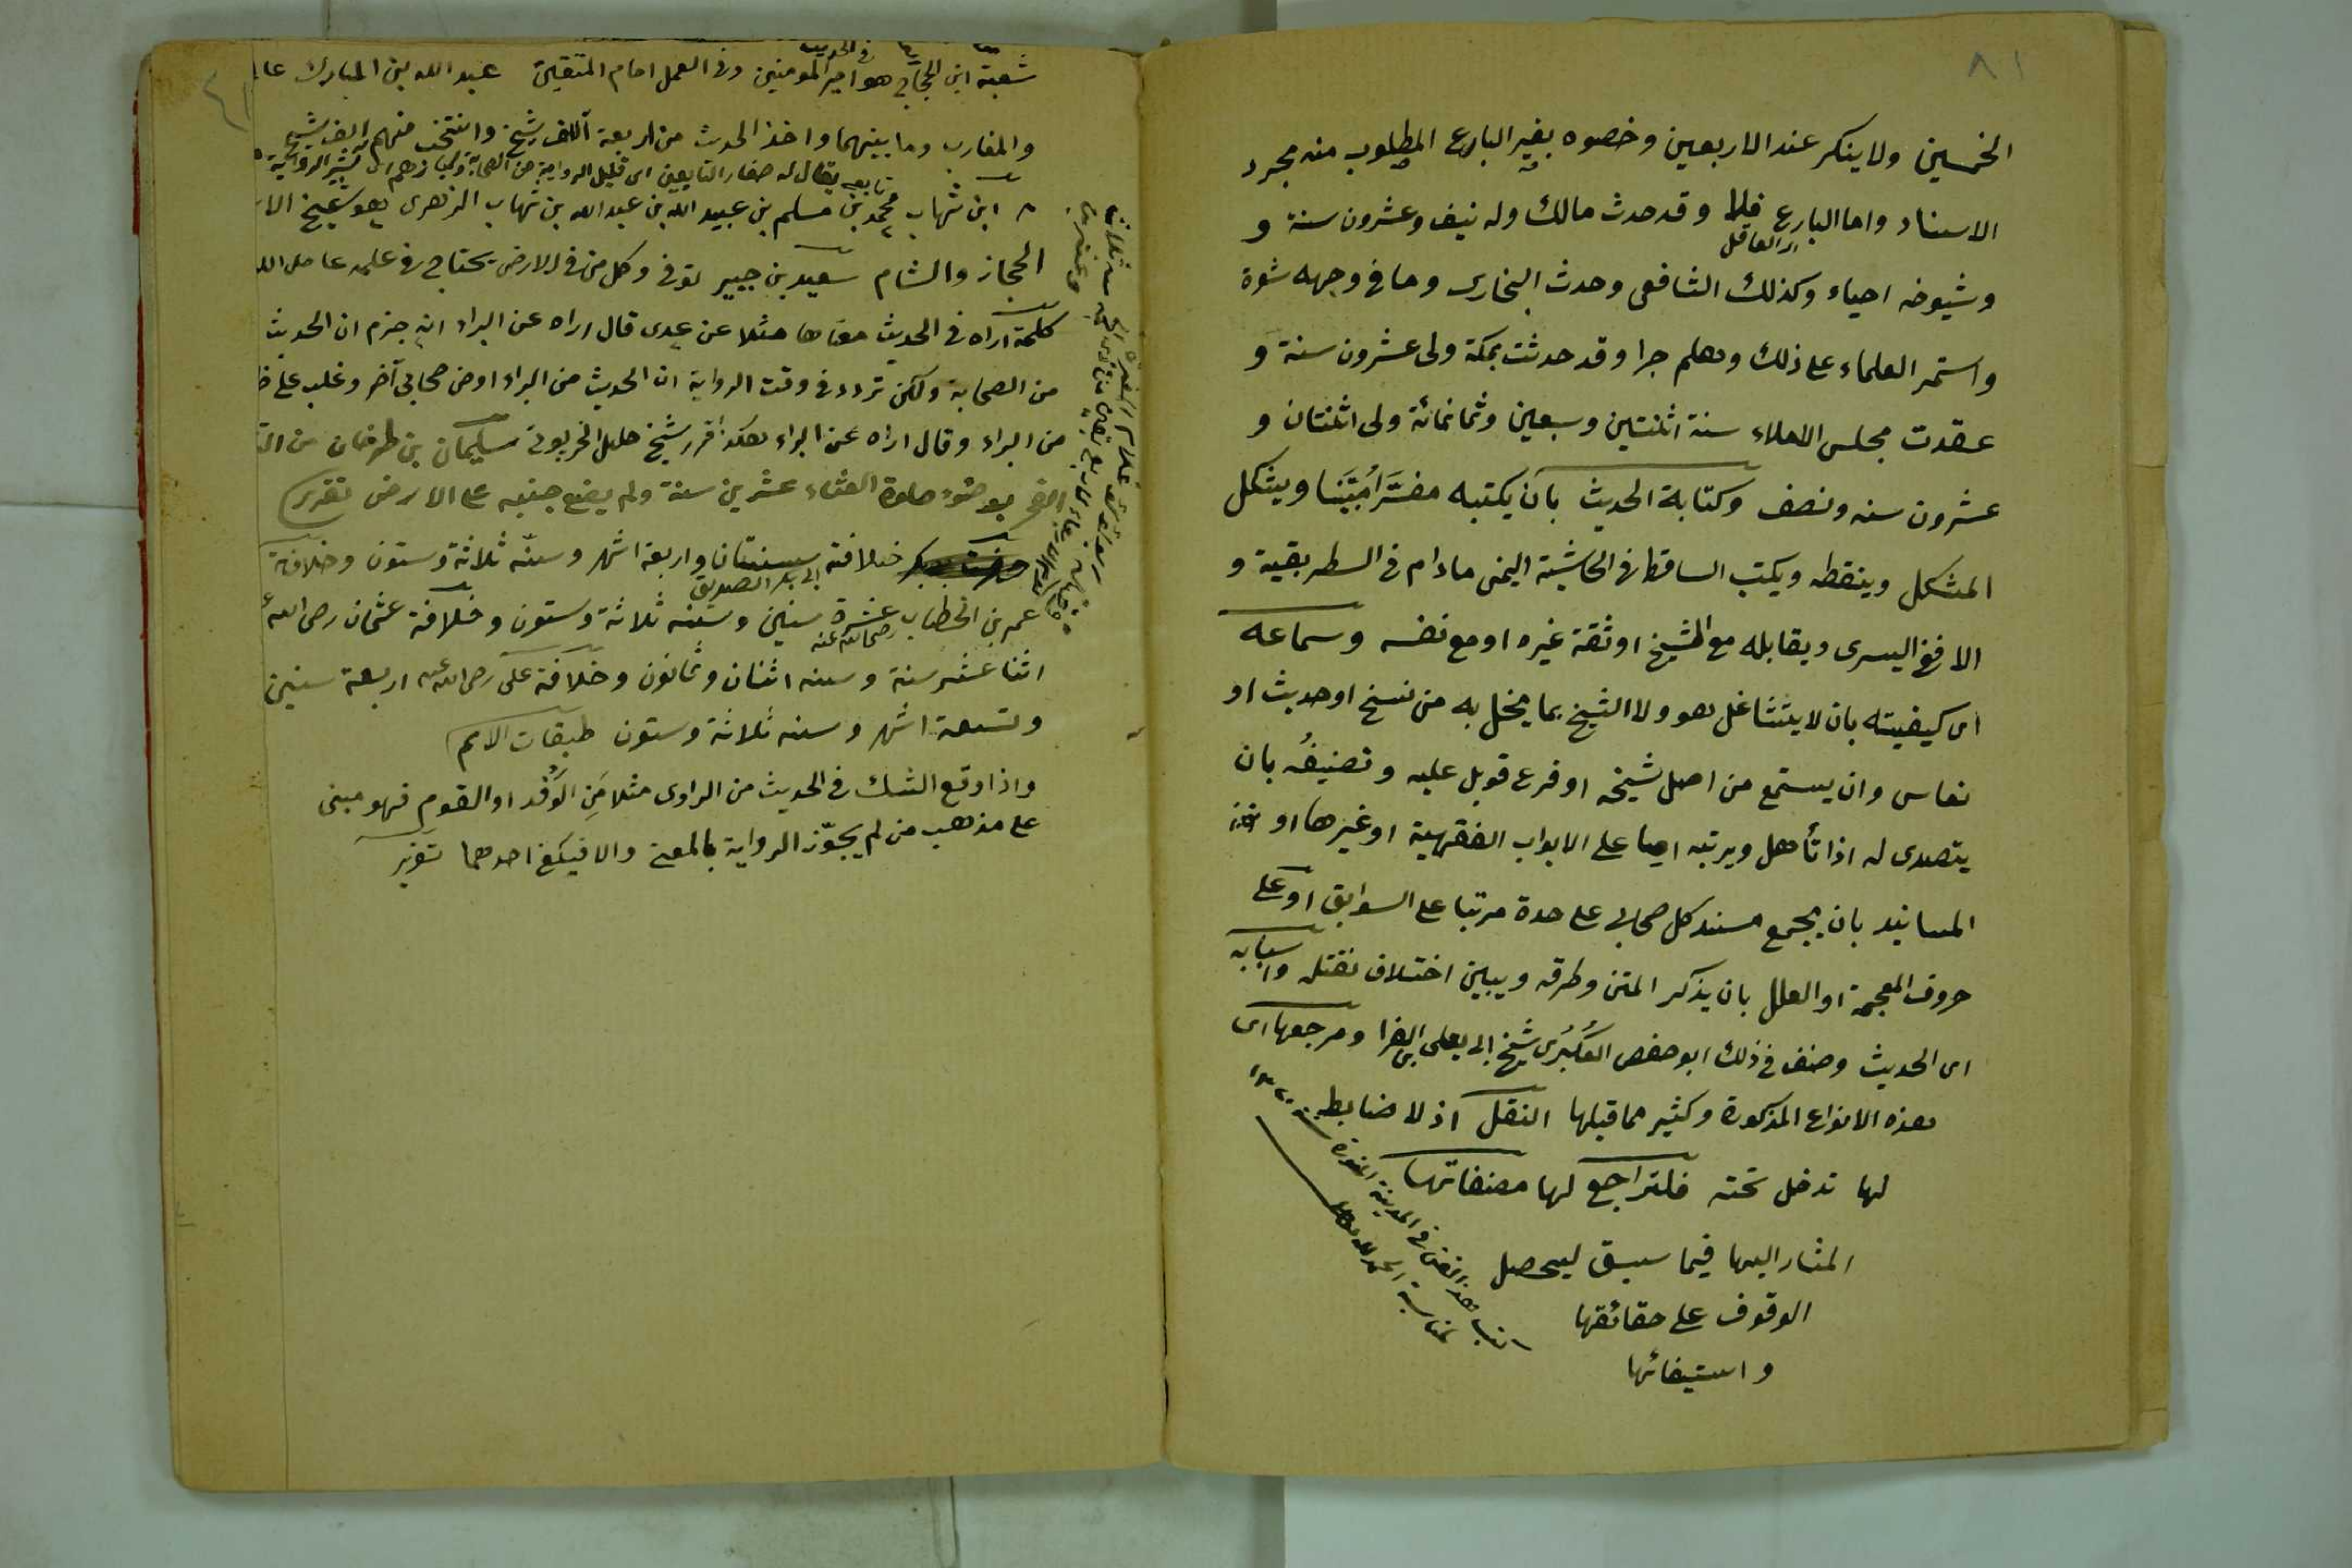 ٨١
الخمسين ولا ينكر عند الاربعين وخصوه بغير البارع المطلوب منه مجرد
الاسناد واما البارع فلا وقد حدث مالك وله نيف وعشرون سنة و
اى العاقل
وشيوخه احياء وكذلك الشافعى وحدث البخارى وما فى وجهه شعرة
واستمر العلماء على ذلك وهلم جرا وقد حدثت بمكة ولى عشرون سنة و
عقدت مجلس الاملاء سنة اثنتين وسبعين وثمانمائة ولى اثنتان و
عشرون سنه ونصف وكتابة الحديث بان يكتبه مفسَّرا مُبَيَّنا ويشكل
المشكل وينقطه ويكتب الساقط فى الحاشية اليمنى مادام فى السطر بقية و
الا فى اليسرى ويقابله مع الشيخ او ثقة غيره او مع نفسه وسماعه
اى كيفيته بان لا يتشاغل هو ولا الشيخ بما يخل به من نسخ او حديث او
نعاس وان يستمع من اصل شيخه او فرع قوبل عليه وتصنيفُه بان
يتصدى له اذا تأهل ويرتبه اما على الابواب الفقهية او غيرها او
المسانيد بان يجمع مسند كل صحابى على حدة مرتبا على السوابق او على
حروف المعجمة او العلل بان يذكر المتن وطرقه ويبين اختلاف نقلته واسبابه
اى الحديث وصنف فى ذلك ابو حفص العُكْبُرى شيخ ابى يعلى بن الفرا ومرجعها اى
هذه الانواع المذكورة وكثير مما قبلها النقل اذ لا ضابط
لها تدخل تحته فلتراجع لها مصنفاتها
المشار اليها فيما سبق ليحصل
الوقوف على حقائقها
واستيفائها
فى المدينة المنورة
فى الحديث
شعبة ابن الحجاج هو امير المومنين وفى العمل امام المتقين عبد الله بن المبارك
والمغارب وما بينهما واخذ الحديث من اربعة آلاف شيخ وانتخب منهم الف شيخ
تابعى يقال له صغار التابعين اى قليل الرواية من الصحابة
ابن شهاب محمد بن مسلم بن عبيد الله بن عبد الله بن شهاب الزهرى هو شيخ
الحجاز والشام سعيد بن جبير توفى وكل من فى الارض يحتاج فى علمه
كلمة اراه فى الحديث معناها مثلا عن عدى قال اراه عن البراء انه جزم ان الحديث
من الصحابة ولكن تردد فى وقت الرواية ان الحديث من البراء او من صحابى آخر وغلب على
من البراء وقال اراه عن البراء هكذا قرر شيخ خليل الخربوتى سليمان بن طرخان من
الفجر بوضوء صلوة العشاء عشرين سنة ولم يضع جنبه على الارض تقرير
خلافة سنتان واربعة اشهر وسنّه ثلاثة وستون وخلافة
ابى بكر الصديق
عمر بن الخطاب عشرة سنين وسنه ثلاثة وستون وخلافة عثمان رضى الله
رضى الله عنه
اثنا عشر سنة وسنه اثنان وثمانون وخلافة على رضى الله عنه اربعة سنين
وتسعة اشهر وسنه ثلاثة وستون طبقات الامم
واذا وقع الشك فى الحديث من الراوى مثلا مَنِ الوَفْد او القوم فهو مبنى
على مذهب من لم يجوّز الرواية بالمعنى والا فيكفى احدهما تقرير